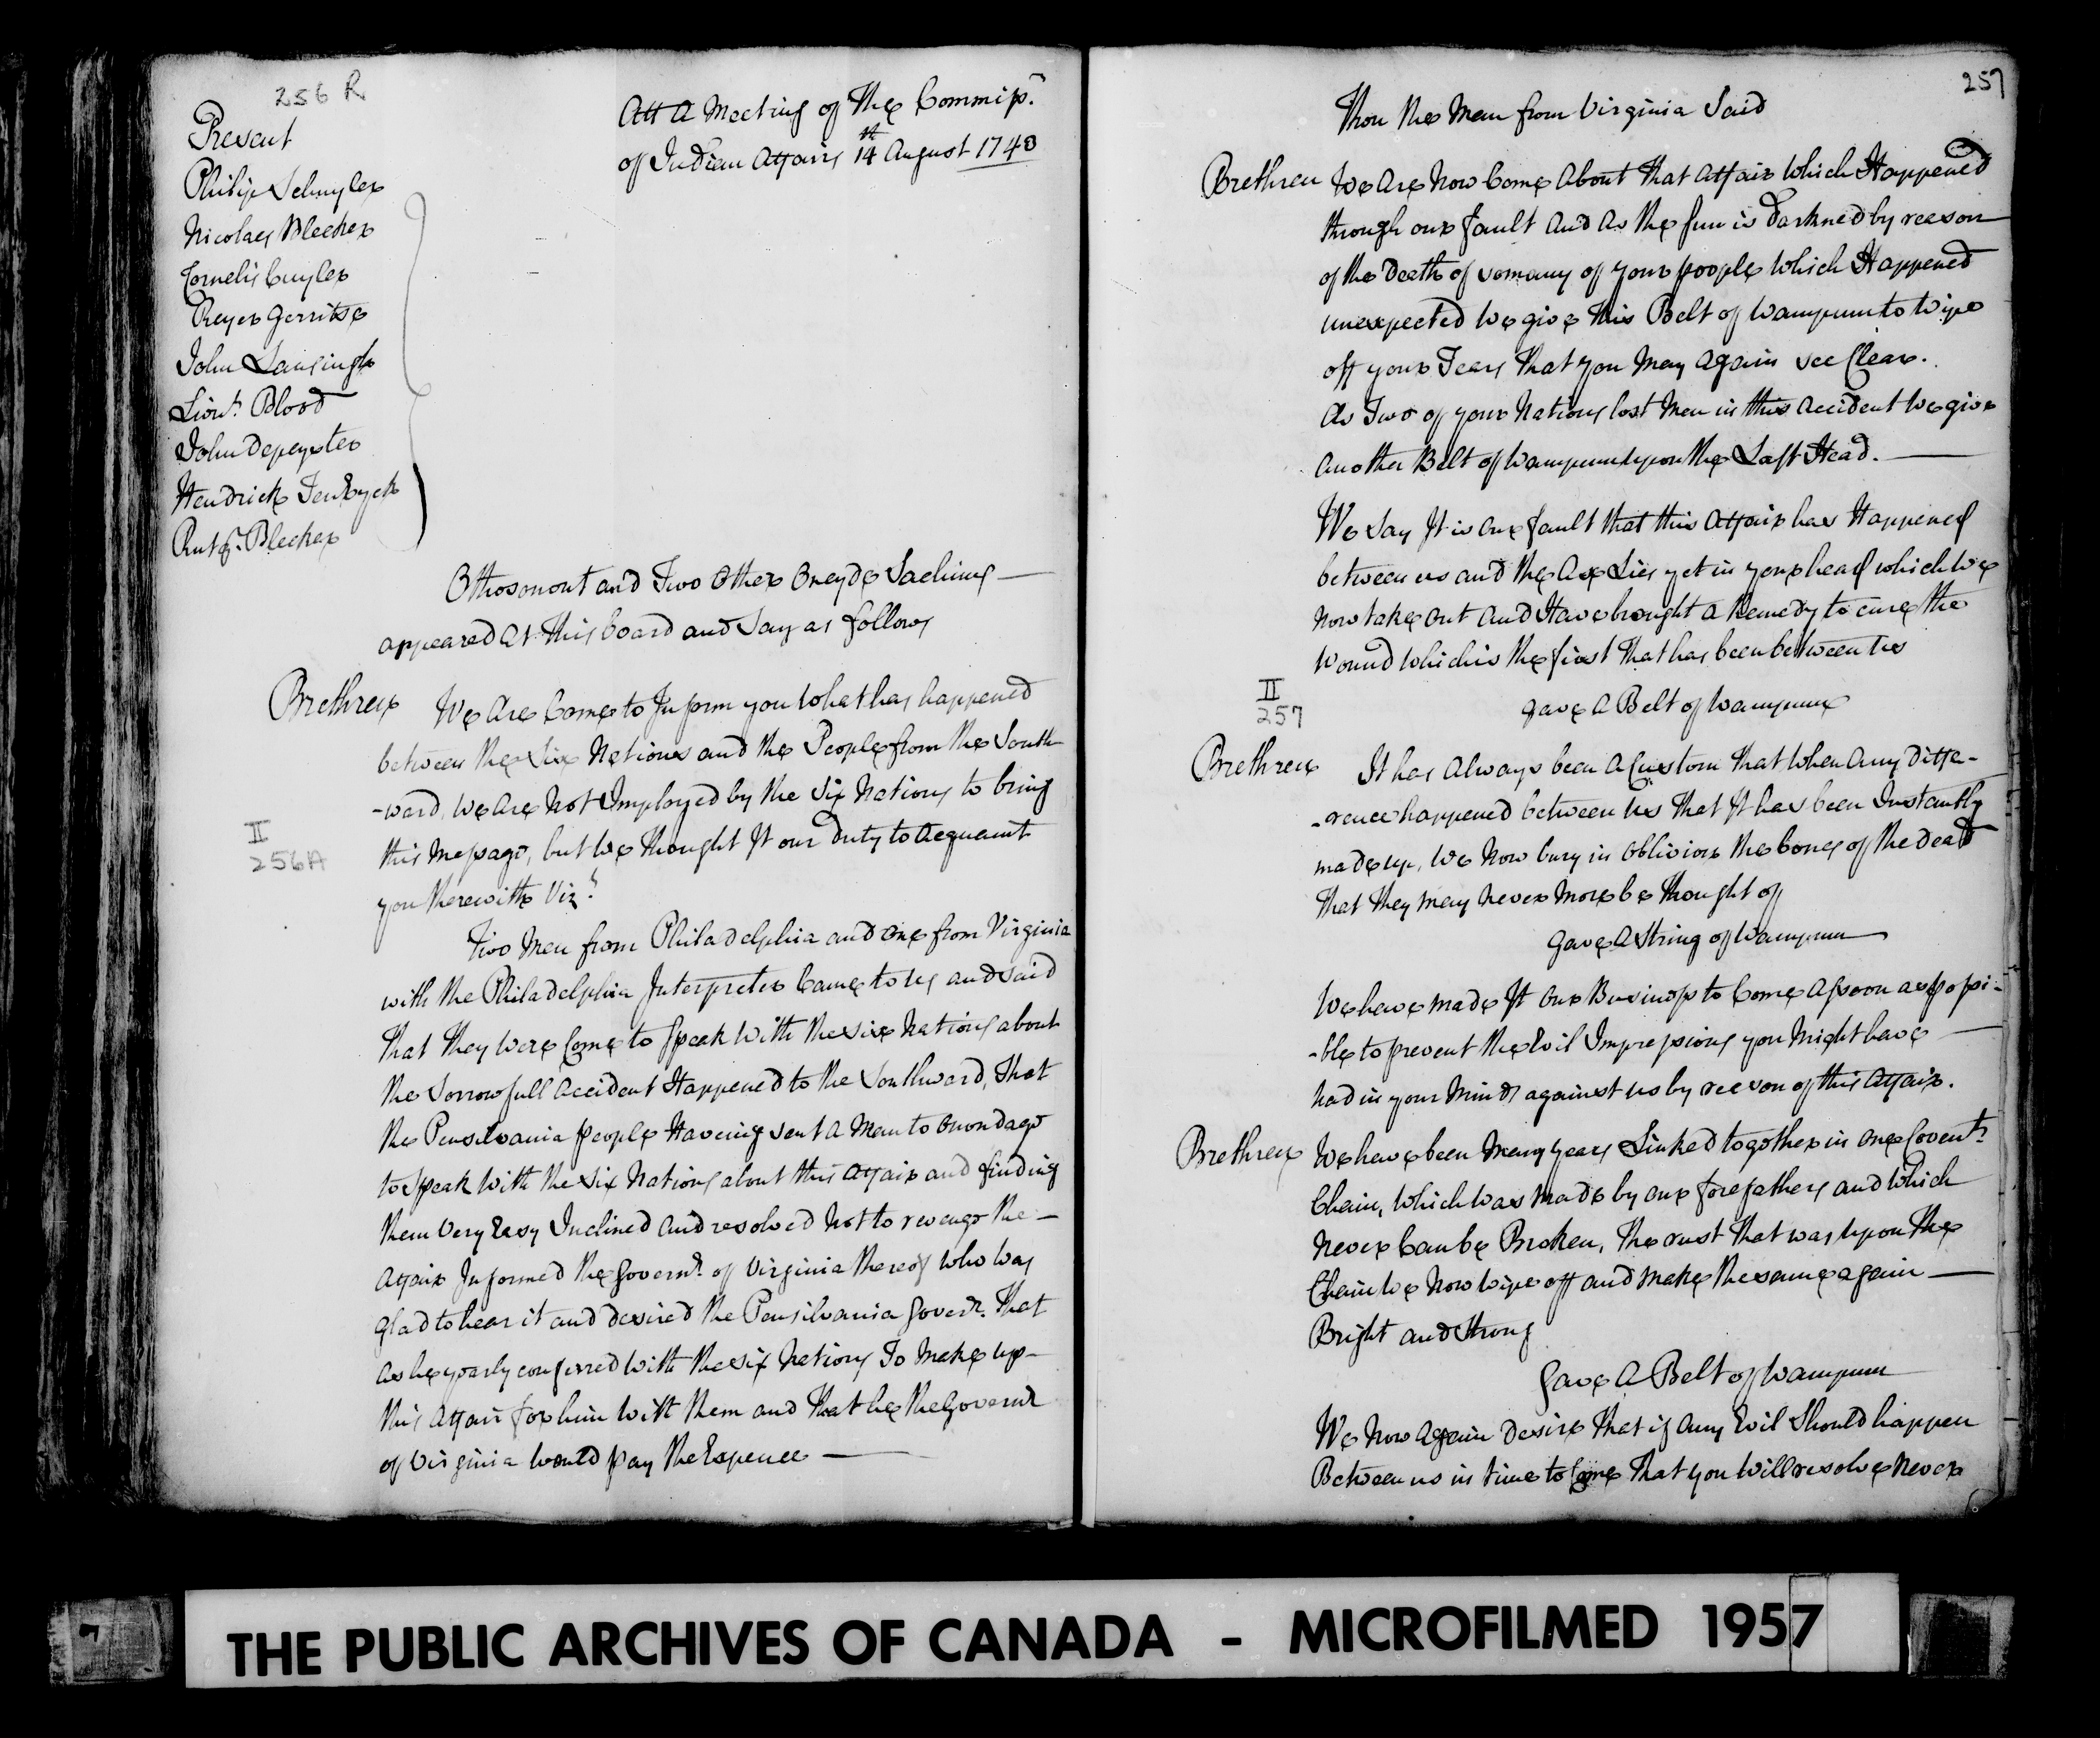 256 R
Present
Philip Schuyler
Nicolaes Bleeker
Cornelis Cuyler
Reyer Gerritse
John Lansingh
Lieut. Blood
John Depeyster
Hendrick TenEyck
Rutg.r Bleeker
Att A Meeting of The Commiss.
of Indian Affairs 14th August 1743
Othosonout and Two Other Oneyde Sachims
appeared at this board and Say as follows
Brethren We Are Come to Inform you What has happened
between the Six Nations and the People from the South
-ward, We Are Not Imployed by the Six Nations to bring
this Message, but We Thought It our duty to Acquaint
you therewith Viz.t
II
256A
Two Men from Philadelphia and One from Virginia
with the Philadelphia Interpreter Came to us and said
That They Were Come to Speak With the Six Nations about
the Sorrowfull Accident Happened to the Southward, That
the Pensilvania people Haveing sent A Man to Onondago
to Speak With the Six Nations about this Affair and finding
them Very Easy Inclined And resolved Not to revenge the
Affair Informed the Govern.r of Virginia thereof Who Was
Glad to hear it and desired the Pensilvania Gover.r That
as he yearly conferred With the Six Nations To Make up
this Affair for him With them and That he the Govern.r
of Virginia Would pay the Expence
257
Then the Man from Virginia Said
Brethren We Are Now Come About that Affair Which Happened
through our fault And As the Sun is Darkned by reason
of the Death of so many of your people Which Happened
unexpected We give This Belt of Wampum to Wipe
off your Tears That you May Again see Clear.
As Two of your Nations lost Men in this Accident We give
Another Belt of Wampum upon the Last Head.
We Say It is our fault that this Affair has Happened
between us and the Axe Lies yet in your head which We
Now take out And Have brought A Remedy to cure the
Wound which is the first That has been between Us
gave A Belt of Wampum
II
257
Brethren It has Always been A Custom That When Any Diffe-
-rence happened between Us That It has been Instantly
made up, We Now bury in Oblivion the bones of the dead
That they may Never More be thought of
gave A String of Wampum
We have made It Our Business to Come As soon as possi-
-ble to prevent the Evil Impressions you Might have
had in your Minds against us by reason of this Affair.
Brethren We have been Many years Linked together in One Coven.t
Chain, Which Was Made by our forefathers and Which
Never Can be Broken, The rust That was upon The
Chain We Now Wipe off and Make the same again
Bright and Strong
Gave A Belt of Wampum
We Now Again Desire That if Any Evil Should happen
Between us in time to Come That you Will resolve Never
THE PUBLIC ARCHIVES OF CANADA - MICROFILMED 1957